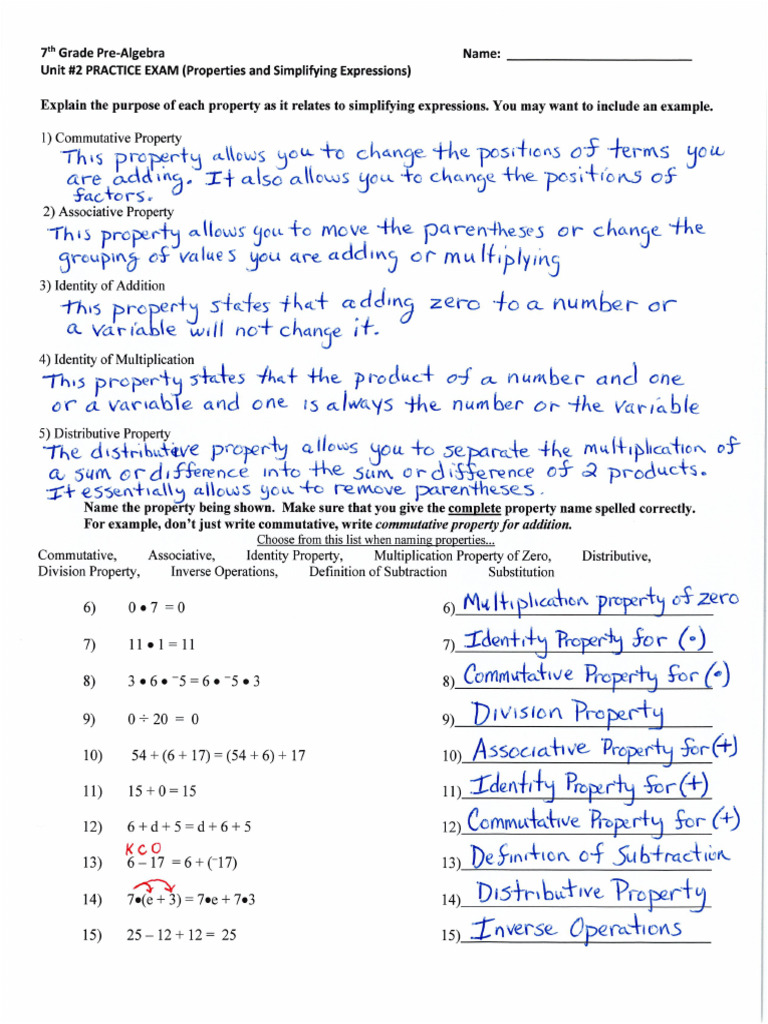 7th Grade Pre-Algebra Name: ____________________
Unit #2 PRACTICE EXAM (Properties and Simplifying Expressions)
Explain the purpose of each property as it relates to simplifying expressions. You may want to include an example.
1) Commutative Property
This property allows you to change the positions of terms you
are adding. It also allows you to change the positions of
factors.
2) Associative Property
This property allows you to move the parentheses or change the
grouping of values you are adding or multiplying
3) Identity of Addition
This property states that adding zero to a number or
a variable will not change it.
4) Identity of Multiplication
This property states that the product of a number and one
or a variable and one is always the number or the variable
5) Distributive Property
The distributive property allows you to separate the multiplication of
a sum or difference into the sum or difference of 2 products.
It essentially allows you to remove parentheses.
Name the property being shown. Make sure that you give the complete property name spelled correctly.
For example, don't just write commutative, write commutative property for addition.
Choose from this list when naming properties...
Commutative, Associative, Identity Property, Multiplication Property of Zero, Distributive,
Division Property, Inverse Operations, Definition of Subtraction Substitution
6) 0 • 7 = 0 6) Multiplication property of zero
7) 11 • 1 = 11 7) Identity Property for (•)
8) 3 • 6 • ⁻5 = 6 • ⁻5 • 3 8) Commutative Property for (•)
9) 0 ÷ 20 = 0 9) Division Property
10) 54 + (6 + 17) = (54 + 6) + 17 10) Associative Property for (+)
11) 15 + 0 = 15 11) Identity Property for (+)
12) 6 + d + 5 = d + 6 + 5 12) Commutative Property for (+)
K C O
13) 6 – 17 = 6 + (⁻17) 13) Definition of Subtraction
14) 7•(e + 3) = 7•e + 7•3 14) Distributive Property
15) 25 – 12 + 12 = 25 15) Inverse Operations